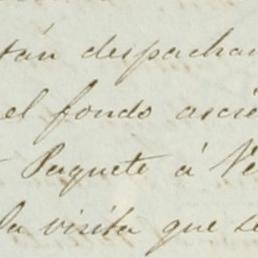 tán despachan
el fondo ascie
Paquete á Ve
la visita que se